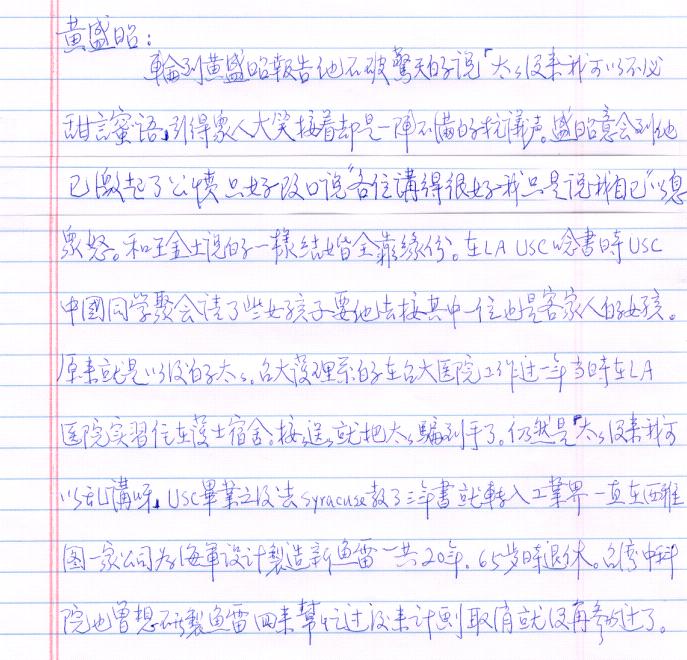 黄盛昭：
輪到黄盛昭報告他石破驚天的说「太太沒来我可以不必
甜言蜜语」引得衆人大笑接着却是一陣不满的抗議声。盛昭意会到他
已激起了公憤只好改口说"各位講得很好我只是说我自己"以息
衆怒。和王金土说的一樣结婚全靠缘份。在LA USC唸書時USC
中國同学聚会请了些女孩子要他去接其中一位也是客家人的女孩。
原来就是以後的太太。台大護理系的在台大医院工作过一年当時在LA
医院实習住在護士宿舍。接接送送就把太太騙到手了。仍然是「太太沒来我可
以乱講呀」USC畢業之後去Syracuse教了三年書就轉入工業界一直在西雅
图一家公司为海軍设计製造新鱼雷一共20年。65岁時退休。台湾中科
院也曾想研製鱼雷回来幫忙过後来计划取消就沒再参与过了。